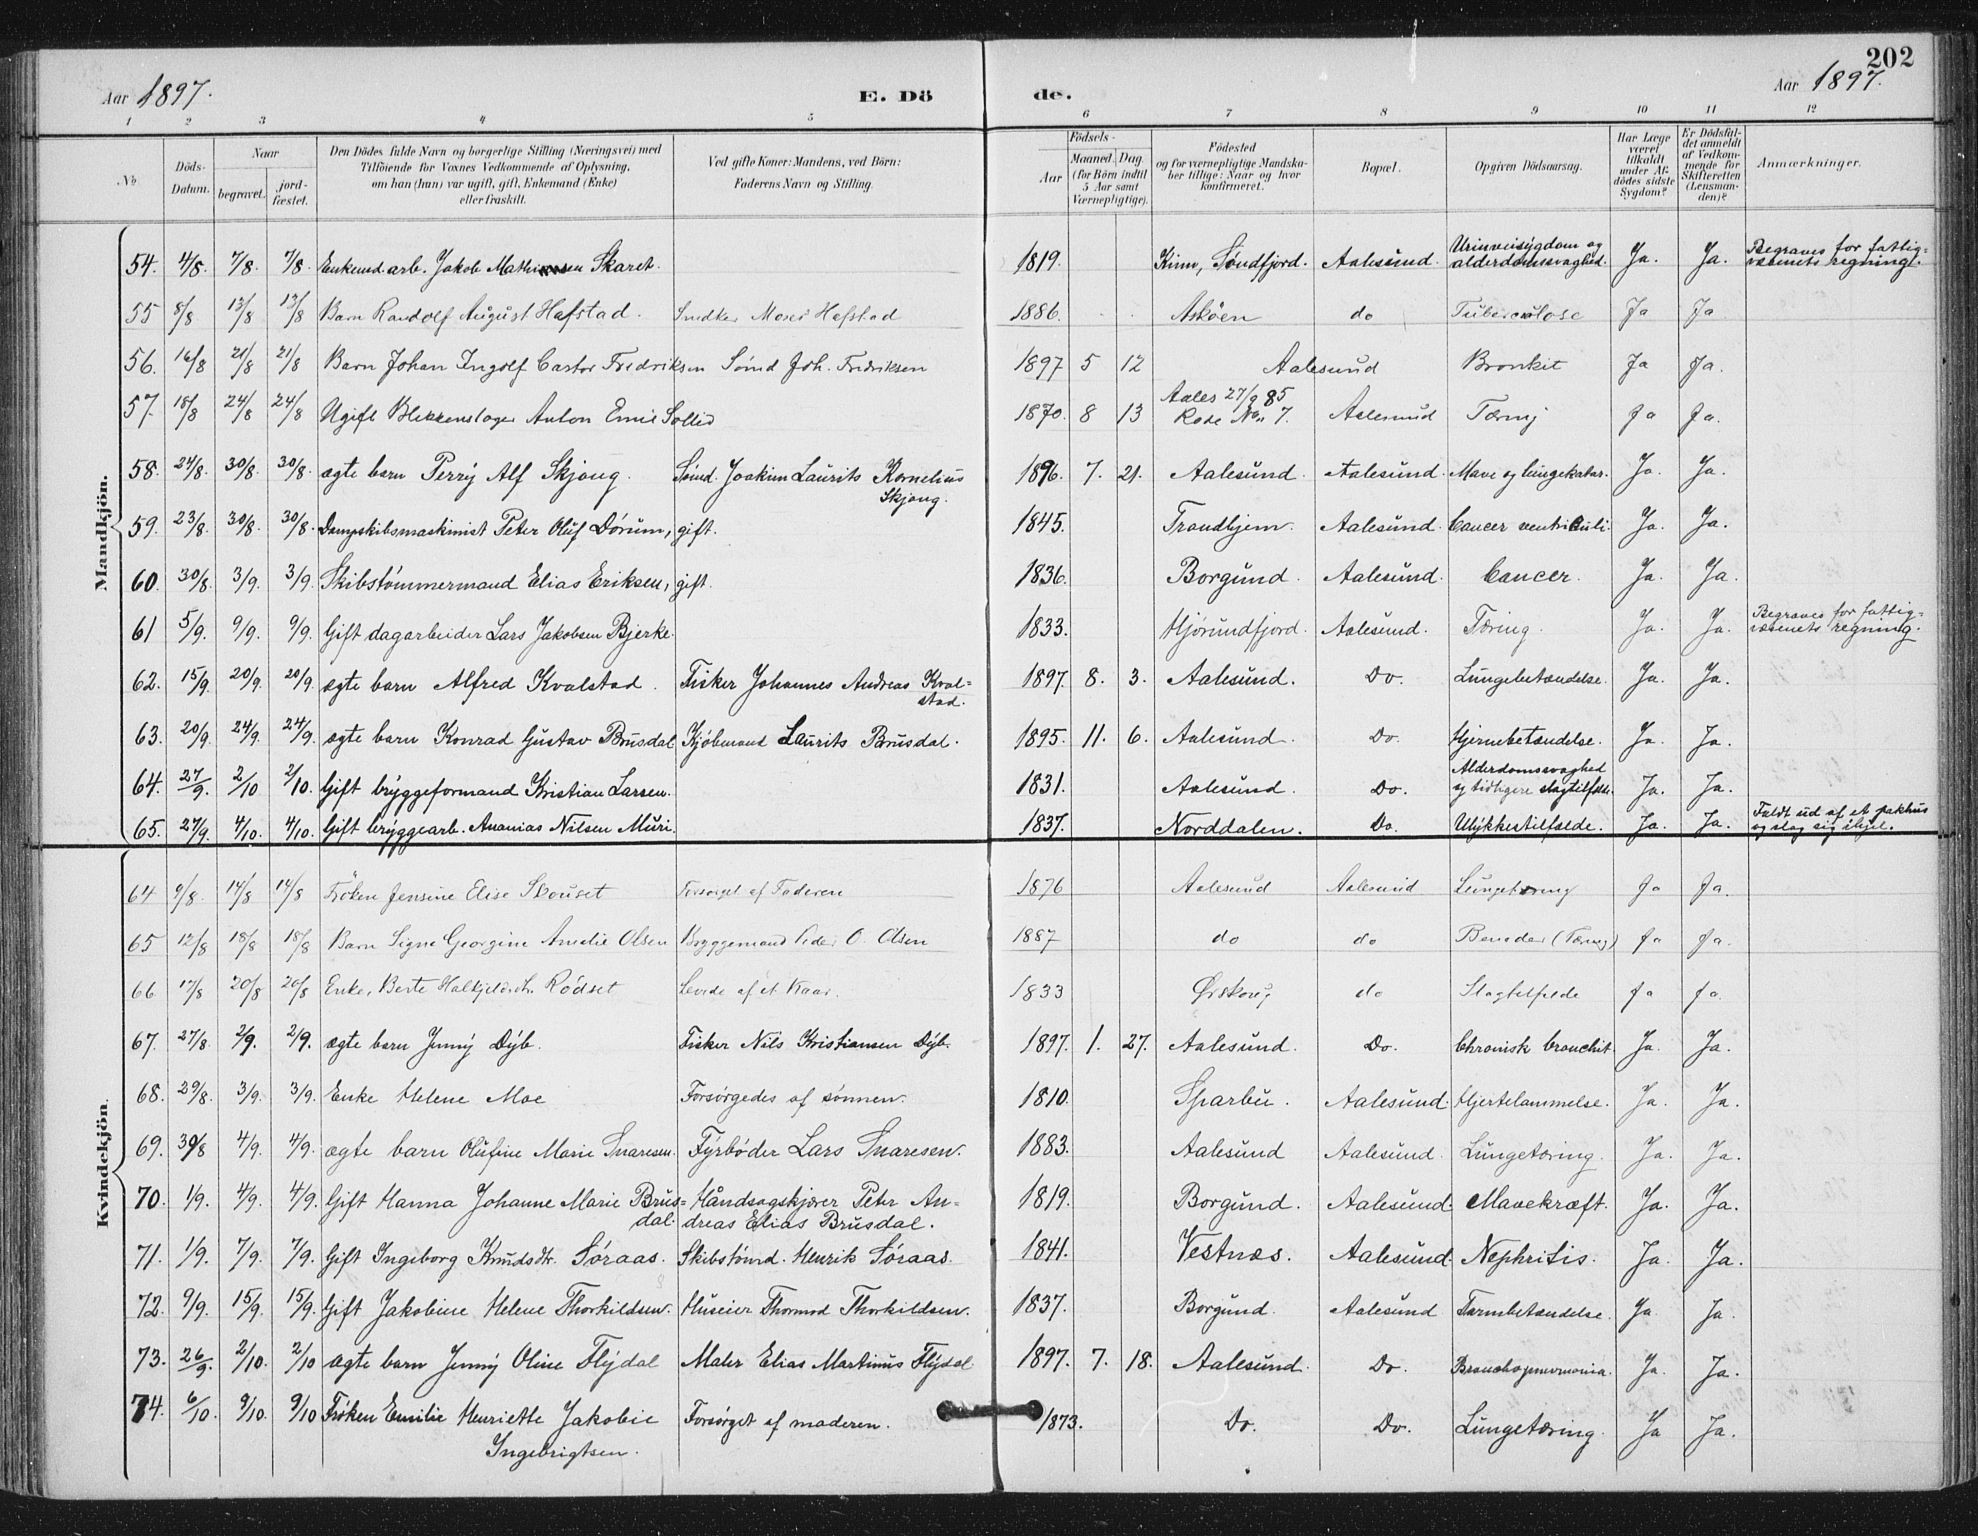 202
Aar 1897. E. Dö de. Aar 1897.
1 2 3 4 5 6 7 8 9 10 11 12
No Döds-Datum. Naar begravet. jordfæstet. Den Dödes fulde Navn og borgerlige Stilling (Næringsvei) med Tilföiende for Voxnes Vedkommende af Oplysning, om han (hun) var ugift, gift, Enkemand (Enke) eller fraskilt. Ved gifte Koner: Mandens, ved Börn: Faderens Navn og Stilling. Födsels- Aar Maaned. Dag. (for Börn indtil 5 Aar samt Værnepligtige). Födested og for værnepligtige Mandskaber tillige: Naar og hvor konfirmeret. Bopæl. Opgiven Dödsaarsag. Har Læge været tilkaldt under Afdödes sidste Sygdom? Er Dödsfaldet anmeldt af Vedkommende for Skifteretten (Lensmanden)? Anmærkninger.
Mandkjön.
54. 4/8. 7/8. 7/8. Enkemd arb. Jakob Mathiassen Skaret. 1819. Kinn, Søndfjord. Aalesund. Urinveisygdom og alderdomssvaghed. Ja. Ja. Begraves for fattigvæsenets regning.
55 8/8 13/8 13/8 Barn Randolf August Hafstad. Snedker Moses Hafstad 1886. Askøen do Tuberculose Ja Ja
56. 16/8 21/8 21/8 Barn Johan Ingolf Castor Fredriksen Sømd Joh. Fredriksen 1897 5 12 Aalesund Bronkit Ja Ja.
57. 18/8 24/8 24/8 Ugift Blikkenslager Anton Emil Sollid 1870. 8 13 Aales 27/9 85 Rode No 7. Aalesund Tæring Ja Ja.
58. 24/8. 30/8. 30/8. ægte barn Perry Alf Skjong. Sømd. Joakim Laurits Kornelius Skjong. 1896. 7. 21. Aalesund. Aalesund. Mave og lungekatar. Ja. Ja.
59. 23/8. 30/8. 30/8. Dampskibsmaskinist Peter Oluf Dórum, gift. 1845. Trondhjem. Aalesund. Cancer ventriculi. Ja. Ja.
60. 30/8. 3/9. 3/9. Skibstømmermand Elias Eriksen, gift. 1836. Borgund. Aalesund. Cancer. Ja. Ja.
61 5/9. 9/9. 9/9. Gift dagarbeider Lars Jakobsen Bjerke. 1833. Hjørundfjord. Aalesund. Tæring. Ja. Ja. Begraves for fattigvæsenets regning.
62. 15/9. 20/9. 20/9. ægte barn Alfred Kvalstad. Fisker Johannes Andreas Kvalstad. 1897. 8. 3. Aalesund. Do. Lungebetændelse. Ja. Ja.
63. 20/9. 24/9. 24/9. ægte barn Konrad Gustav Brusdal Kjøbmand Laurits Brusdal. 1895. 11. 6. Aalesund. Do. Hjernebetændelse. Ja. Ja.
64. 27/9. 2/10 2/10. Gift bryggeformand Kristian Larsen. 1831. Aalesund. Do. Alderdomssvaghed og tidligere slagtilfælde. Ja. Ja.
65. 27/9. 4/10. 4/10. Gift bryggearb. Ananias Nilsen Muri. 1837. Norddalen. Do. Ulykkestilfælde. Ja. Ja. Faldt ud af et pakhus og slog sig ihjel.
Kvindekjön.
64 9/8. 14/8 14/8 Frøken Jensine Elise Skouset Forsørget af Faderen 1876 Aalesund Aalesund Lungetæring Ja Ja.
65 12/8 18/8 18/8 Barn Signe Georgine Amelie Olsen Bryggemand Peder O. Olsen 1887 do do Beneder (Tæring) Ja Ja.
66 17/8 20/8 20/8 Enke, Berte Halkjeldsdtr. Rödset Levede af et Kaar. 1833 Ørskoug do Slagtilfælde Ja Ja.
67. 27/8. 2/9. 2/9. ægte barn Jenny Dyb. Fisker Nils Kristiansen Dyb. 1897. 1. 27. Aalesund. Do. Chronisk bronchit. Ja. Ja.
68. 29/8. 3/9. 3/9. Enke Helene Moe Forsørgedes af sønnen. 1810. Sparbu. Aalesund. Hjertelammelse. Ja. Ja.
69. 30/8 4/9. 4/9. ægte barn Olufine Marie Snaresen. Fyrbøder Lars Snaresen. 1883. Aalesund Aalesund. Lungetæring. Ja. Ja.
70. 1/9. 4/9. 4/9. Gift Hanna Johanne Marie Brusdal. Håndsagskjører Peter Andreas Elias Brusdal. 1819. Borgund. Aalesund. Mavekræft. Ja. Ja.
71. 1/9. 7/9. 7/9. Gift Ingeborg Knudsdtr. Søraas. Skibstømd. Henrik Søraas. 1841. Vestnæs. Aalesund. Nephritis. Ja Ja.
72. 9/9. 15/9. 15/9. Gift Jakobine Helene Thorkildsen. Huseier Thormod Thorkildsen. 1837. Borgund. Aalesund Tarmbetændelse. Ja. Ja.
73. 26/9. 2/10. 2/10 ægte barn Jenny Oline Flydal Maler Elias Martinus Flydal 1897. 7. 18. Aalesund. Do. Bronchopneumonia. Ja. Ja.
74. 6/10. 9/10. 9/10 Frøken Emilie Henriette Jakobie Ingebrigtsen. Forsørget af moderen. 1873. Do. Do. Lungetæring. Ja Ja.